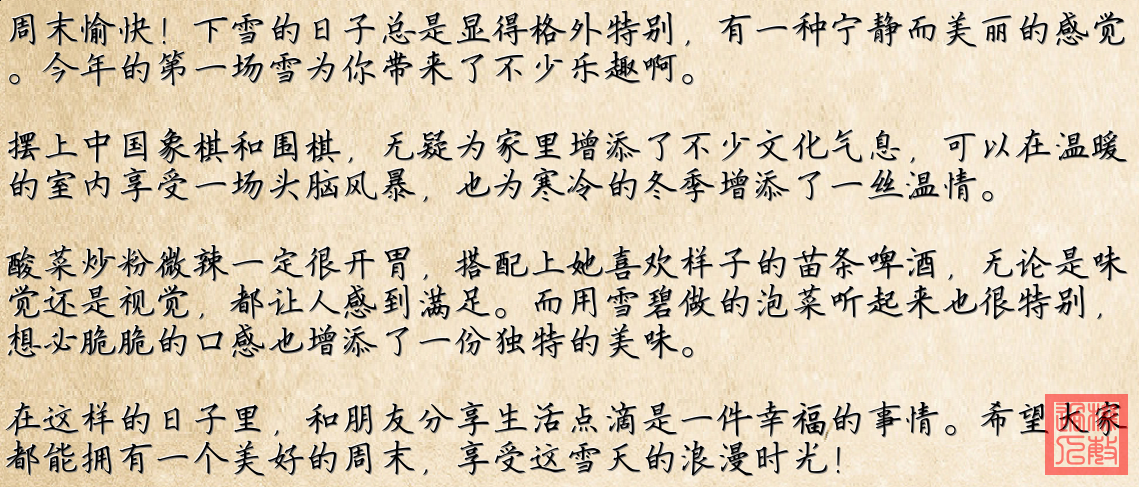 周末愉快！下雪的日子总是显得格外特别，有一种宁静而美丽的感觉
。今年的第一场雪为你带来了不少乐趣啊。
摆上中国象棋和围棋，无疑为家里增添了不少文化气息，可以在温暖
的室内享受一场头脑风暴，也为寒冷的冬季增添了一丝温情。
酸菜炒粉微辣一定很开胃，搭配上她喜欢样子的苗条啤酒，无论是味
觉还是视觉，都让人感到满足。而用雪碧做的泡菜听起来也很特别，
想必脆脆的口感也增添了一份独特的美味。
在这样的日子里，和朋友分享生活点滴是一件幸福的事情。希望大家
都能拥有一个美好的周末，享受这雪天的浪漫时光！